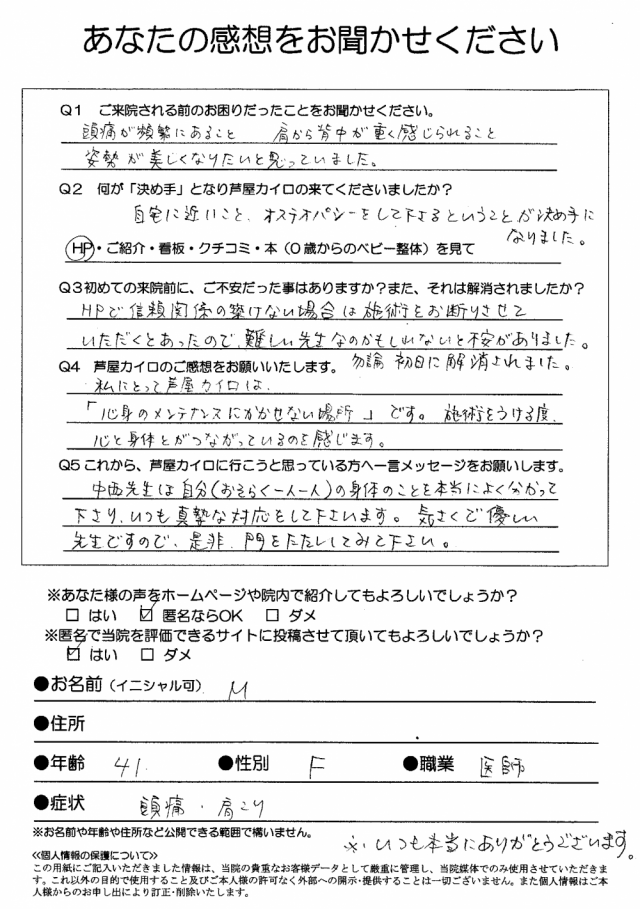 あなたの感想をお聞かせください
Q1 ご来院される前のお困りだったことをお聞かせください。
頭痛が頻繁にあること 肩から背中が重く感じられること
姿勢が美しくなりたいと思っていました。
Q2 何が「決め手」となり芦屋カイロの来てくださいましたか?
自宅に近いこと、オステオパシーをして下さるということが決め手に
なりました。
HP・ご紹介・看板・クチコミ・本(0歳からのベビー整体)を見て
Q3初めての来院前に、ご不安だった事はありますか?また、それは解消されましたか?
HPで信頼関係の築けない場合は施術をお断りさせて
いただくとあったので、難しい先生なのかもしれないと不安がありました。
勿論 初日に解消されました。
Q4 芦屋カイロのご感想をお願いいたします。
私にとって芦屋カイロは、
「心身のメンテナンスにかかせない場所」です。施術をうける度、
心と身体とがつながっているのを感じます。
Q5これから、芦屋カイロに行こうと思っている方へ一言メッセージをお願いします。
中西先生は自分(おそらく一人一人)の身体のことを本当によく分かって
下さり、いつも真摯な対応をして下さいます。気さくで優しい
先生ですので、是非、門をたたいてみて下さい。
※あなた様の声をホームページや院内で紹介してもよろしいでしょうか?
□ はい ☑ 匿名ならOK □ ダメ
※匿名で当院を評価できるサイトに投稿させて頂いてもよろしいでしょうか?
☑ はい □ ダメ
●お名前(イニシャル可) M
●住所
●年齢 41 ●性別 F ●職業 医師
●症状 頭痛・肩こり
※お名前や年齢や住所など公開できる範囲で構いません。
※ いつも本当にありがとうございます。
≪個人情報の保護について≫
この用紙にご記入いただきました情報は、当院の貴重なお客様データとして厳重に管理し、当院媒体でのみ使用させていただきま
す。これ以外の目的で使用すること及びご本人様の許可なく外部への開示・提供することは一切ございません。また個人情報はご本
人様からのお申し出により訂正・削除いたします。